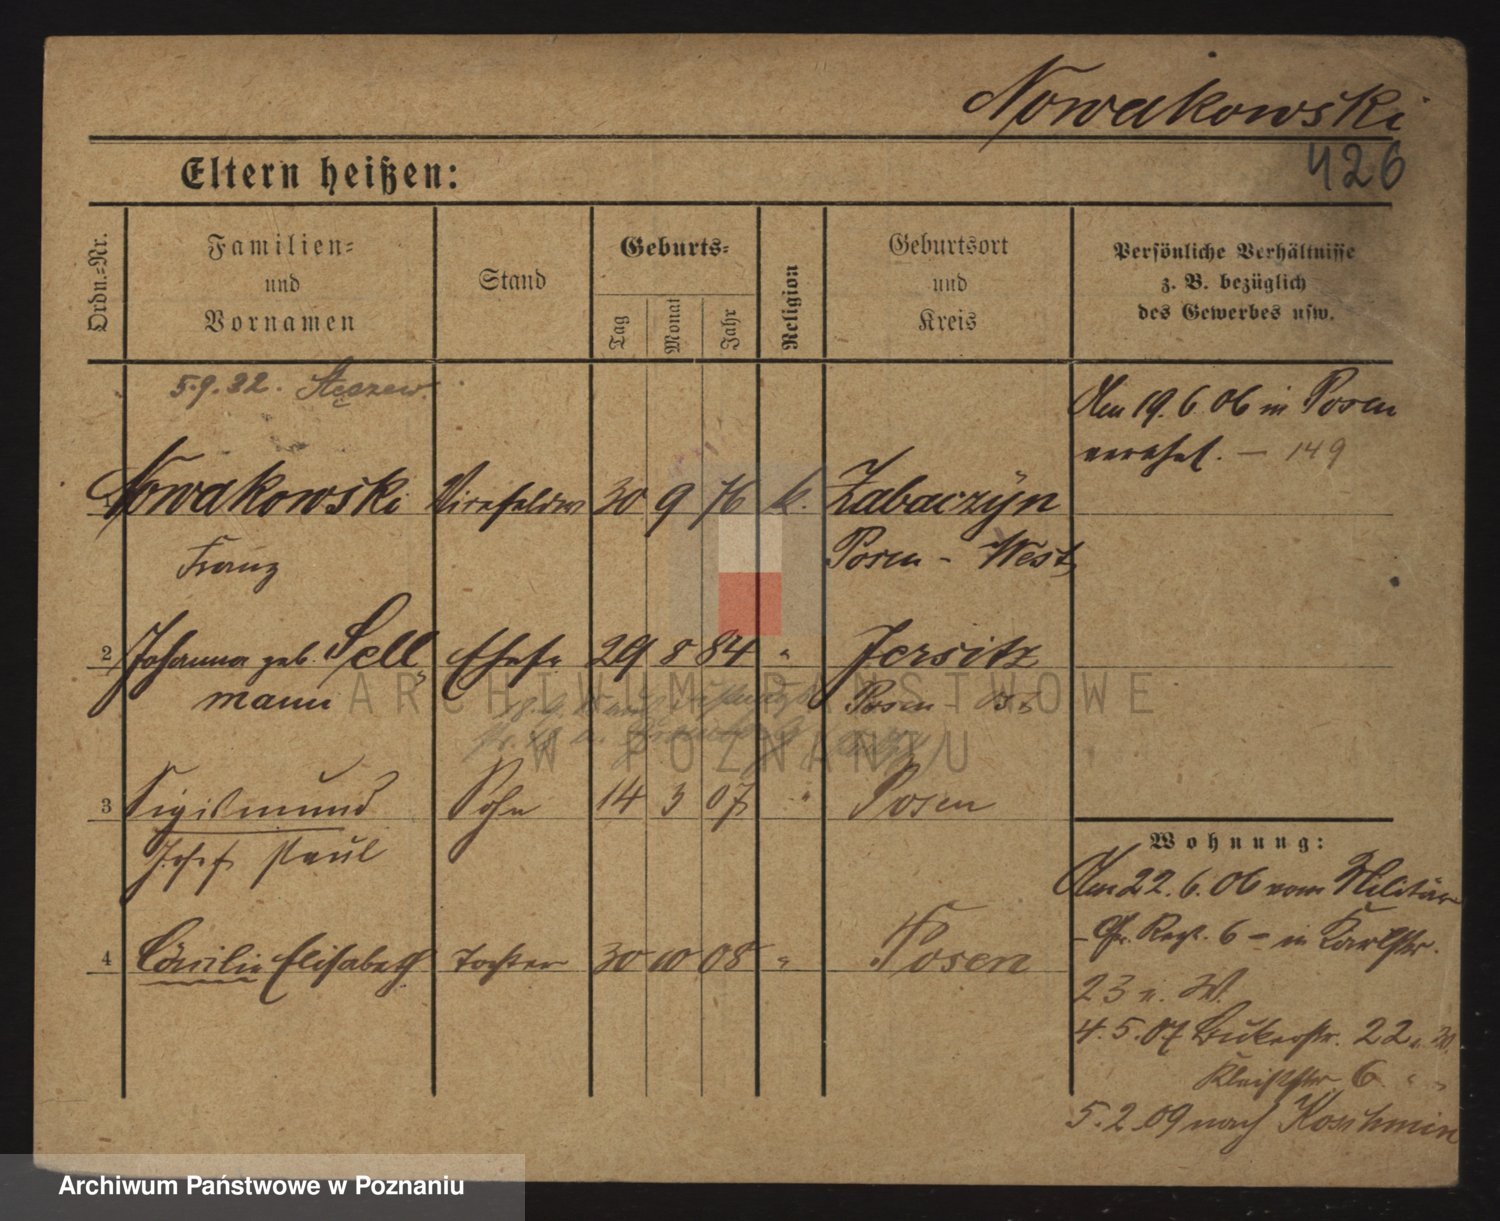 Nowakowski
426
Eltern heißen:
Ordn.-Nr.
Familien- und Vornamen
Stand
Geburts-
Tag
Monat
Jahr
Religion
Geburtsort und Kreis
Persönliche Verhältnisse z. B. bezüglich des Gewerbes usw.
5.9.32. Stęszew.
Am 19.6.06 in Posen
verehel. — 149
Nowakowski 30 9 76 k. Zabaczyn
Franz Posen - West
2 Johanna geb. Sell Ehefr 29 8 84 " Jersitz
mann Posen - Ost
3 Sigismund Sohn 14 3 07 " Posen
Josef Paul
4 Cäcilie Elisabeth Tochter 30 10 08 " Posen
Wohnung:
Am 22.6.06 vom Militär
- Gr. Regt. 6 - in Karlstr.
23 n. W.
4.5.07 Bukerstr. 22
Kleiststr. 6 " "
5.2.09 nach Koschmin
ARCHIWUM PAŃSTWOWE
W POZNANIU
Archiwum Państwowe w Poznaniu